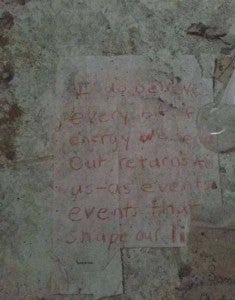 I do believe
every
energy we
Out returns
us-as events
events that
shape our